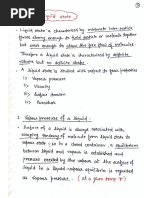 Liquid state
- Liquid state is characterized by molecular interaction
forces strong enough to hold matter or molecules together
but weak enough to allow the free flow of molecules.
- Therefore a liquid is characterized by definite
volume but no definite shape.
- A liquid state is studied with respect to four properties
i) Vapour pressure
ii) Viscosity
iii) Surface tension
iv) Parachor.
Vapour pressure of a liquid:
- Surface of a liquid is always associated with
escaping tendency of molecules from liquid state to
vapour state; so in a closed container, an equilibrium
between liquid and vapour is established and
pressure exerted by the vapour at the surface of
liquid in a liquid vapour equilibrium is regarded
as vapour pressure. (at a given temp T)